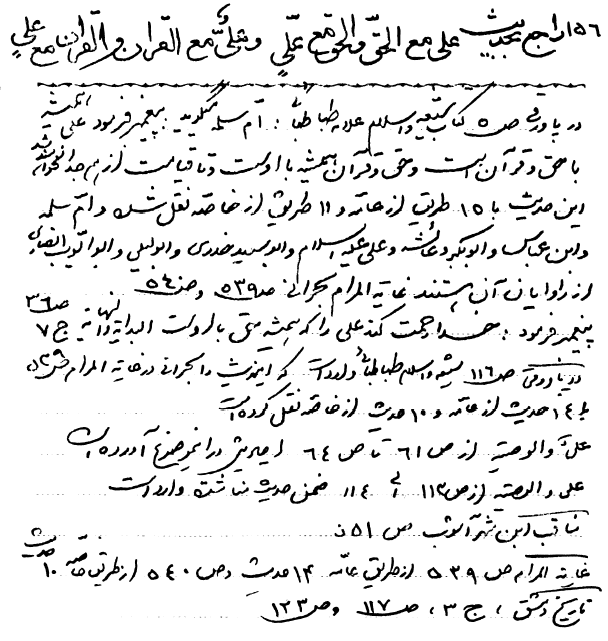 ۱۵۶ راجع بحدیث علی مع الحقّ والحق مع علّی وعلیّ مع القران والقران مع علی
در پاورقی ص ۵ کتاب شیعه در اسلام علامه طباطبائی: امّ سلمه میگوید پیغمبر فرمود علی همیشه
با حق و قرآن است وحق وقرآن همیشه با اوست وتا قیامت از هم جدا نخواهند شد
این حدیث با ۱۵ طریق از عامه و ۱۱ طریق از خاصه نقل شده وامّ سلمه
وابن عباس وابوبکر وعائشه وعلی علیه السلام وابو سعید خدری وابو لیلی وابو ایّوب انصاری
از راویان آن هستند غایة المرام بحرانی ص ۵۳۹ وص ۵۴۰
پیغمبر فرمود: خدا رحمت کند علی را که همیشه حق با اوست البدایة والنهایة ج ۷ ص ۳۶
در پاورقی ص ۱۱۶ شیعه در اسلام طباطبائی وارد است که این حدیث را بحرانی در غایة المرام ص ۵۳۹
با ۱۴ حدیث از عامه و ۱۰ حدیث از خاصه نقل کرده است
علیّ والوصیة از ص ۶۱ تا ص ۶۴ احادیثی در این موضوع آورده است
علی والوصیة از ص ۱۱۳ الی ۱۱۴ ضمن حدیث مناشده وارد است
مناقب ابن شهر آشوب ص ۵۱
غایة المرام ص ۵۳۹ از طریق عامّه ۱۴ حدیث وص ۵۴۰ از طریق خاصّه ۱۰ حدیث
تاریخ دمشق، ج ۳، ص ۱۱۷ وص ۱۲۳